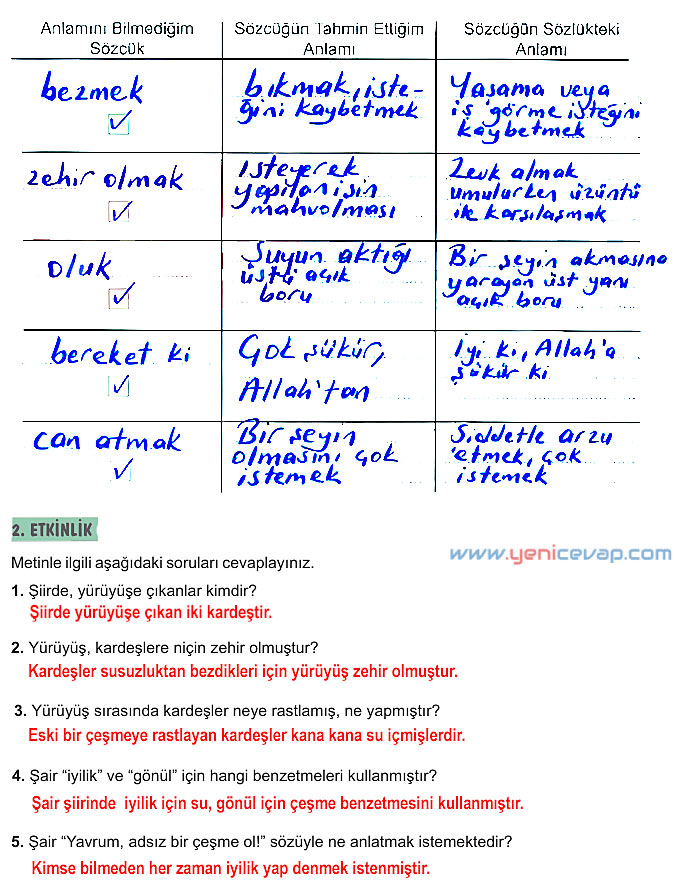 Anlamını Bilmediğim Sözcük
Sözcüğün Tahmin Ettiğim Anlamı
Sözcüğün Sözlükteki Anlamı
bezmek
bıkmak, iste-
ğini kaybetmek
Yaşama veya
iş görme isteğini
kaybetmek
zehir olmak
İsteyerek
yapılan işin
mahvolması
Zevk almak
umulurken üzüntü
ile karşılaşmak
oluk
Suyun aktığı
üstü açık
boru
Bir şeyin akmasına
yarayan üst yanı
açık boru
bereket ki
Çok şükür,
Allah'tan
İyi ki, Allah'a
şükür ki
can atmak
Bir şeyin
olmasını çok
istemek
Şiddetle arzu
etmek, çok
istemek
2. ETKİNLİK
www.yenicevap.com
Metinle ilgili aşağıdaki soruları cevaplayınız.
1. Şiirde, yürüyüşe çıkanlar kimdir?
Şiirde yürüyüşe çıkan iki kardeştir.
2. Yürüyüş, kardeşlere niçin zehir olmuştur?
Kardeşler susuzluktan bezdikleri için yürüyüş zehir olmuştur.
3. Yürüyüş sırasında kardeşler neye rastlamış, ne yapmıştır?
Eski bir çeşmeye rastlayan kardeşler kana kana su içmişlerdir.
4. Şair “iyilik” ve “gönül” için hangi benzetmeleri kullanmıştır?
Şair şiirinde iyilik için su, gönül için çeşme benzetmesini kullanmıştır.
5. Şair “Yavrum, adsız bir çeşme ol!” sözüyle ne anlatmak istemektedir?
Kimse bilmeden her zaman iyilik yap denmek istenmiştir.